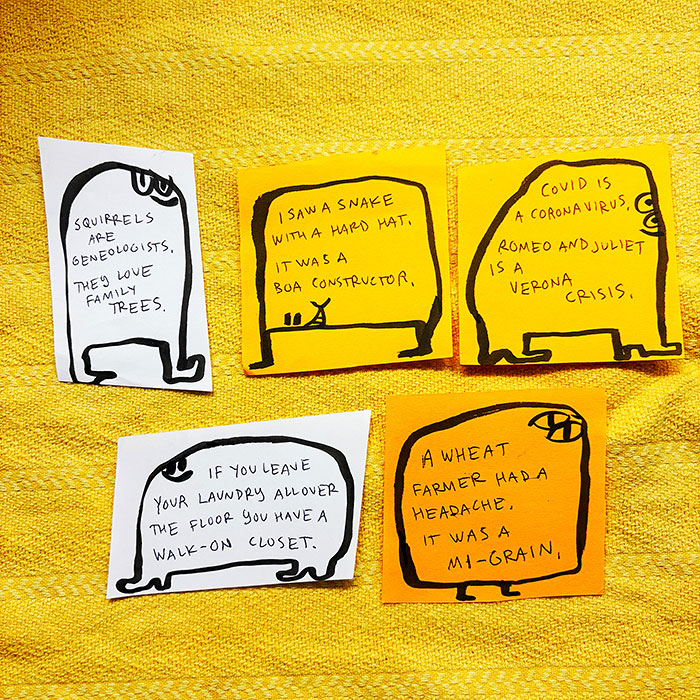 SQUIRRELS
ARE
GENEOLOGISTS.
THEY LOVE
FAMILY
TREES.
I SAW A SNAKE
WITH A HARD HAT.
IT WAS A
BOA CONSTRUCTOR.
COVID IS
A CORONAVIRUS.
ROMEO AND JULIET
IS A
VERONA
CRISIS.
IF YOU LEAVE
YOUR LAUNDRY ALL OVER
THE FLOOR YOU HAVE A
WALK-ON CLOSET.
A WHEAT
FARMER HAD A
HEADACHE.
IT WAS A
MI-GRAIN.